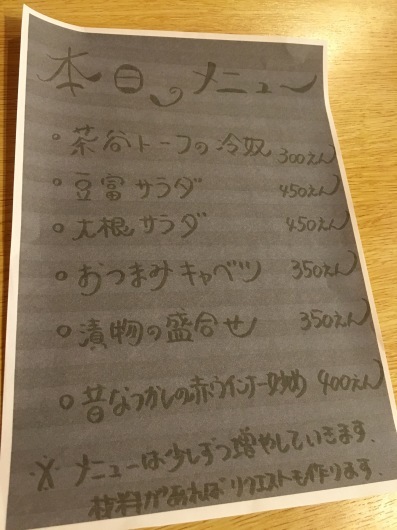 本日のメニュー
○ 茶谷トーフの冷奴 300えん
○ 豆富サラダ 450えん
○ 大根サラダ 450えん
○ おつまみキャベツ 350えん
○ 漬物の盛合せ 350えん
○ 昔なつかしの赤ウインナー炒め 400えん
※ メニューは少しずつ増やしていきます.
材料があればリクエストも作ります.